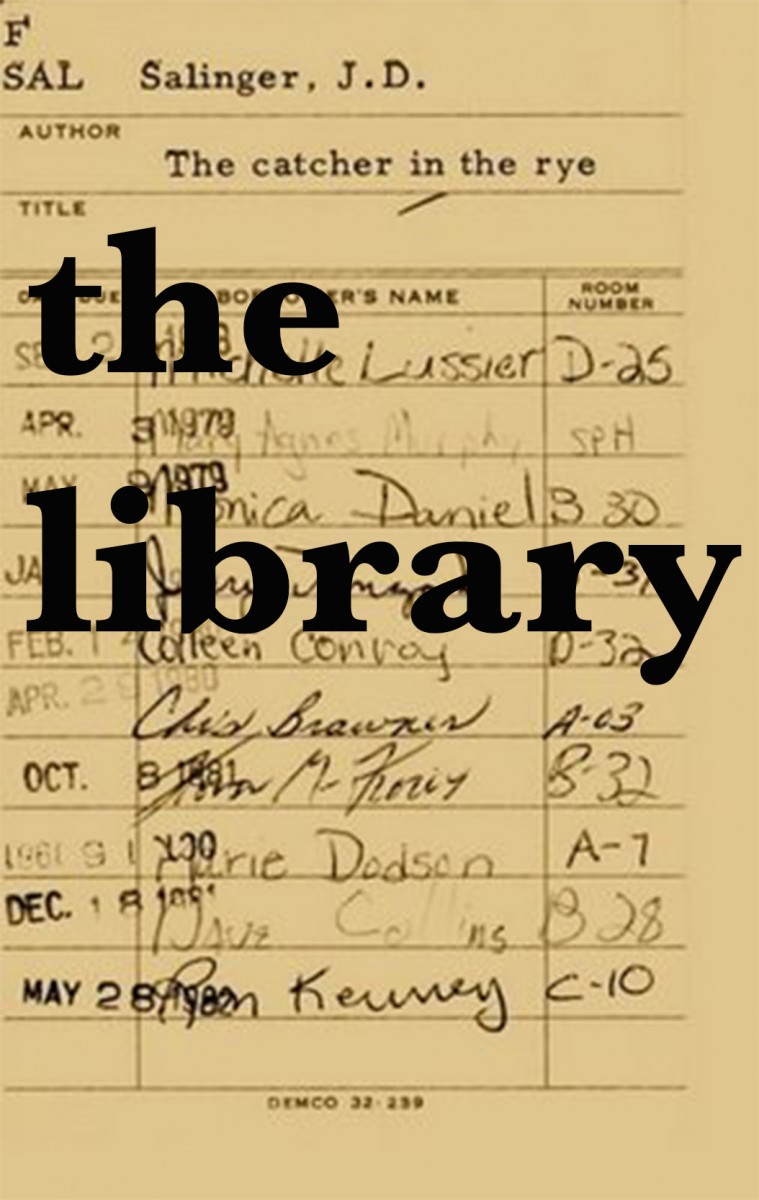 F
SAL Salinger, J.D.
AUTHOR
The catcher in the rye
TITLE
the
BORROWER'S NAME ROOM NUMBER
Michelle Lussier D-25
APR. 3 1979 Mary Agnes Murphy SPH
MAY 9 1979 Monica Daniel B 30
library
FEB. 14 Colleen Conroy D-32
APR. 28 1980
Chris A-03
OCT. 8 1981 B-32
Marie Dodson A-7
DEC. 18 1981 Dave Collins B 28
MAY 28 1982 C-10
DEMCO 32-239